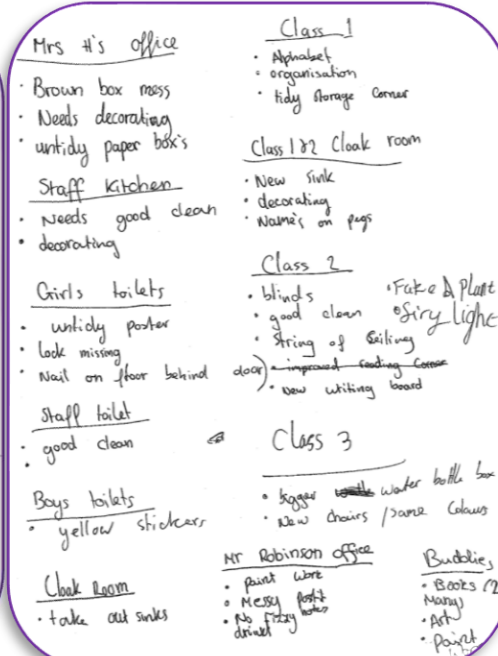 Mrs H's office
· Brown box mess
· Needs decorating
· untidy paper box's
Staff Kitchen
· Needs good clean
· decorating
Girls toilets
· untidy poster
· Lock missing
· Nail on floor behind door)
Staff toilet
· good clean
·
Boys toilets
· yellow stickers
Cloak Room
· take out sinks
Class 1
· Alphabet
· organisation
· tidy storage corner
Class 1&2 Cloak room
· New sink
· decorating
· Name's on pegs
Class 2
· blinds
· good clean
· String of Ceiling
· improved reading corner
· New writing board
· Fake Plant
· firy light
Class 3
· bigger water bottle box
· New chairs / same Colours
Mr Robinson office
· paint work
· Messy Postit notes
· No fizzy
drinks
Buddies
· Books
Many)
· Art
· Paint